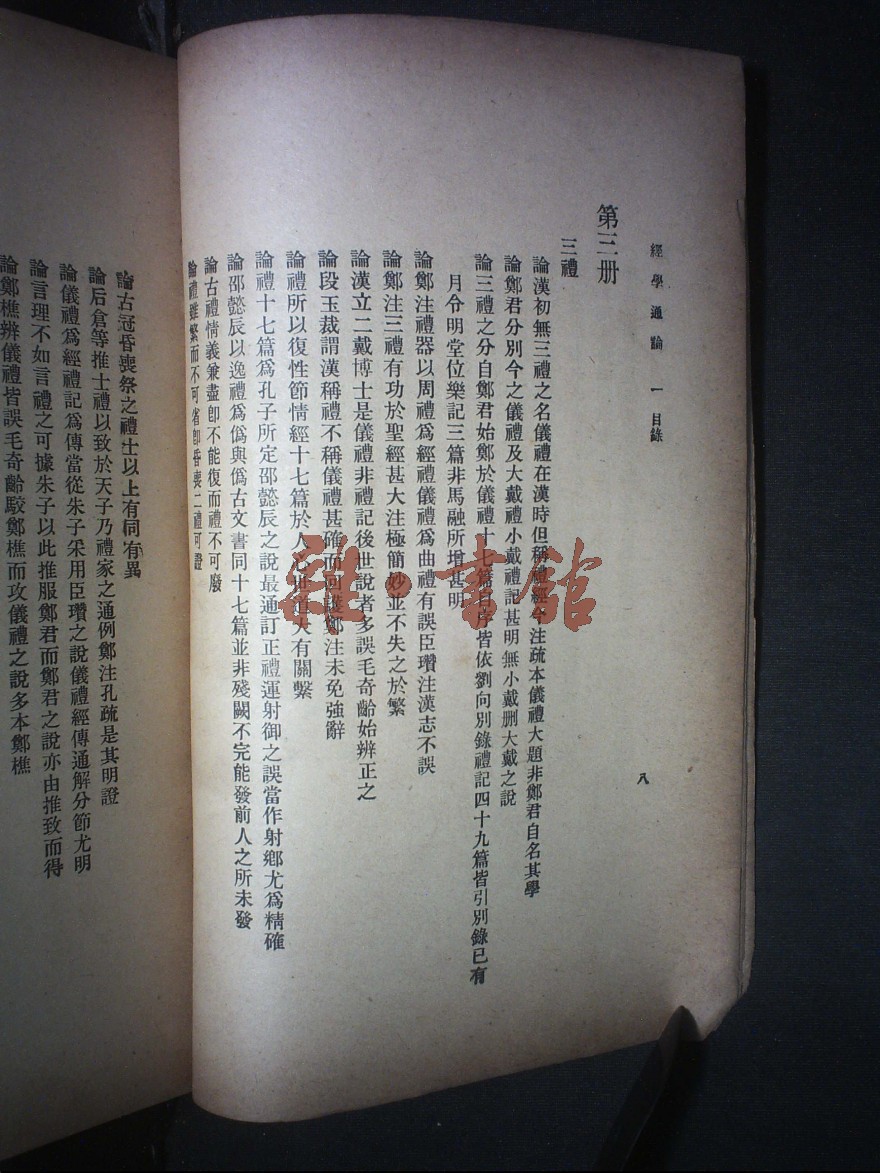 經學通論 一 目錄
八
第三册
三禮
論漢初無三禮之名儀禮在漢時但稱禮經今注疏本儀禮大題非鄭君自名其學
論鄭君分別今之儀禮及大戴禮小戴禮記甚明無小戴刪大戴之說
論三禮之分自鄭君始鄭於儀禮十七篇目序皆依劉向別錄禮記四十九篇皆引別錄已有
月令明堂位樂記三篇非馬融所增甚明
論鄭注禮器以周禮爲經禮儀禮爲曲禮有誤臣瓚注漢志不誤
論鄭注三禮有功於聖經甚大注極簡妙並不失之於繁
論漢立二戴博士是儀禮非禮記後世說者多誤毛奇齡始辨正之
論段玉裁謂漢稱禮不稱儀禮甚確而回護鄭注未免強辭
論禮所以復性節情經十七篇於人心世道大有關繫
論禮十七篇爲孔子所定邵懿辰之說最通訂正禮運射御之誤當作射鄉尤爲精確
論邵懿辰以逸禮爲僞與僞古文書同十七篇並非殘闕不完能發前人之所未發
論古禮情義兼盡卽不能復而禮不可廢
論禮雖繁而不可省卽昏喪二禮可證
論古冠昏喪祭之禮士以上有同有異
論后倉等推士禮以致於天子乃禮家之通例鄭注孔疏是其明證
論儀禮爲經禮記爲傳當從朱子采用臣瓚之說儀禮經傳通解分節尤明
論言理不如言禮之可據朱子以此推服鄭君而鄭君之說亦由推致而得
論鄭樵辨儀禮皆誤毛奇齡駁鄭樵而攻儀禮之說多本鄭樵
雜·書館